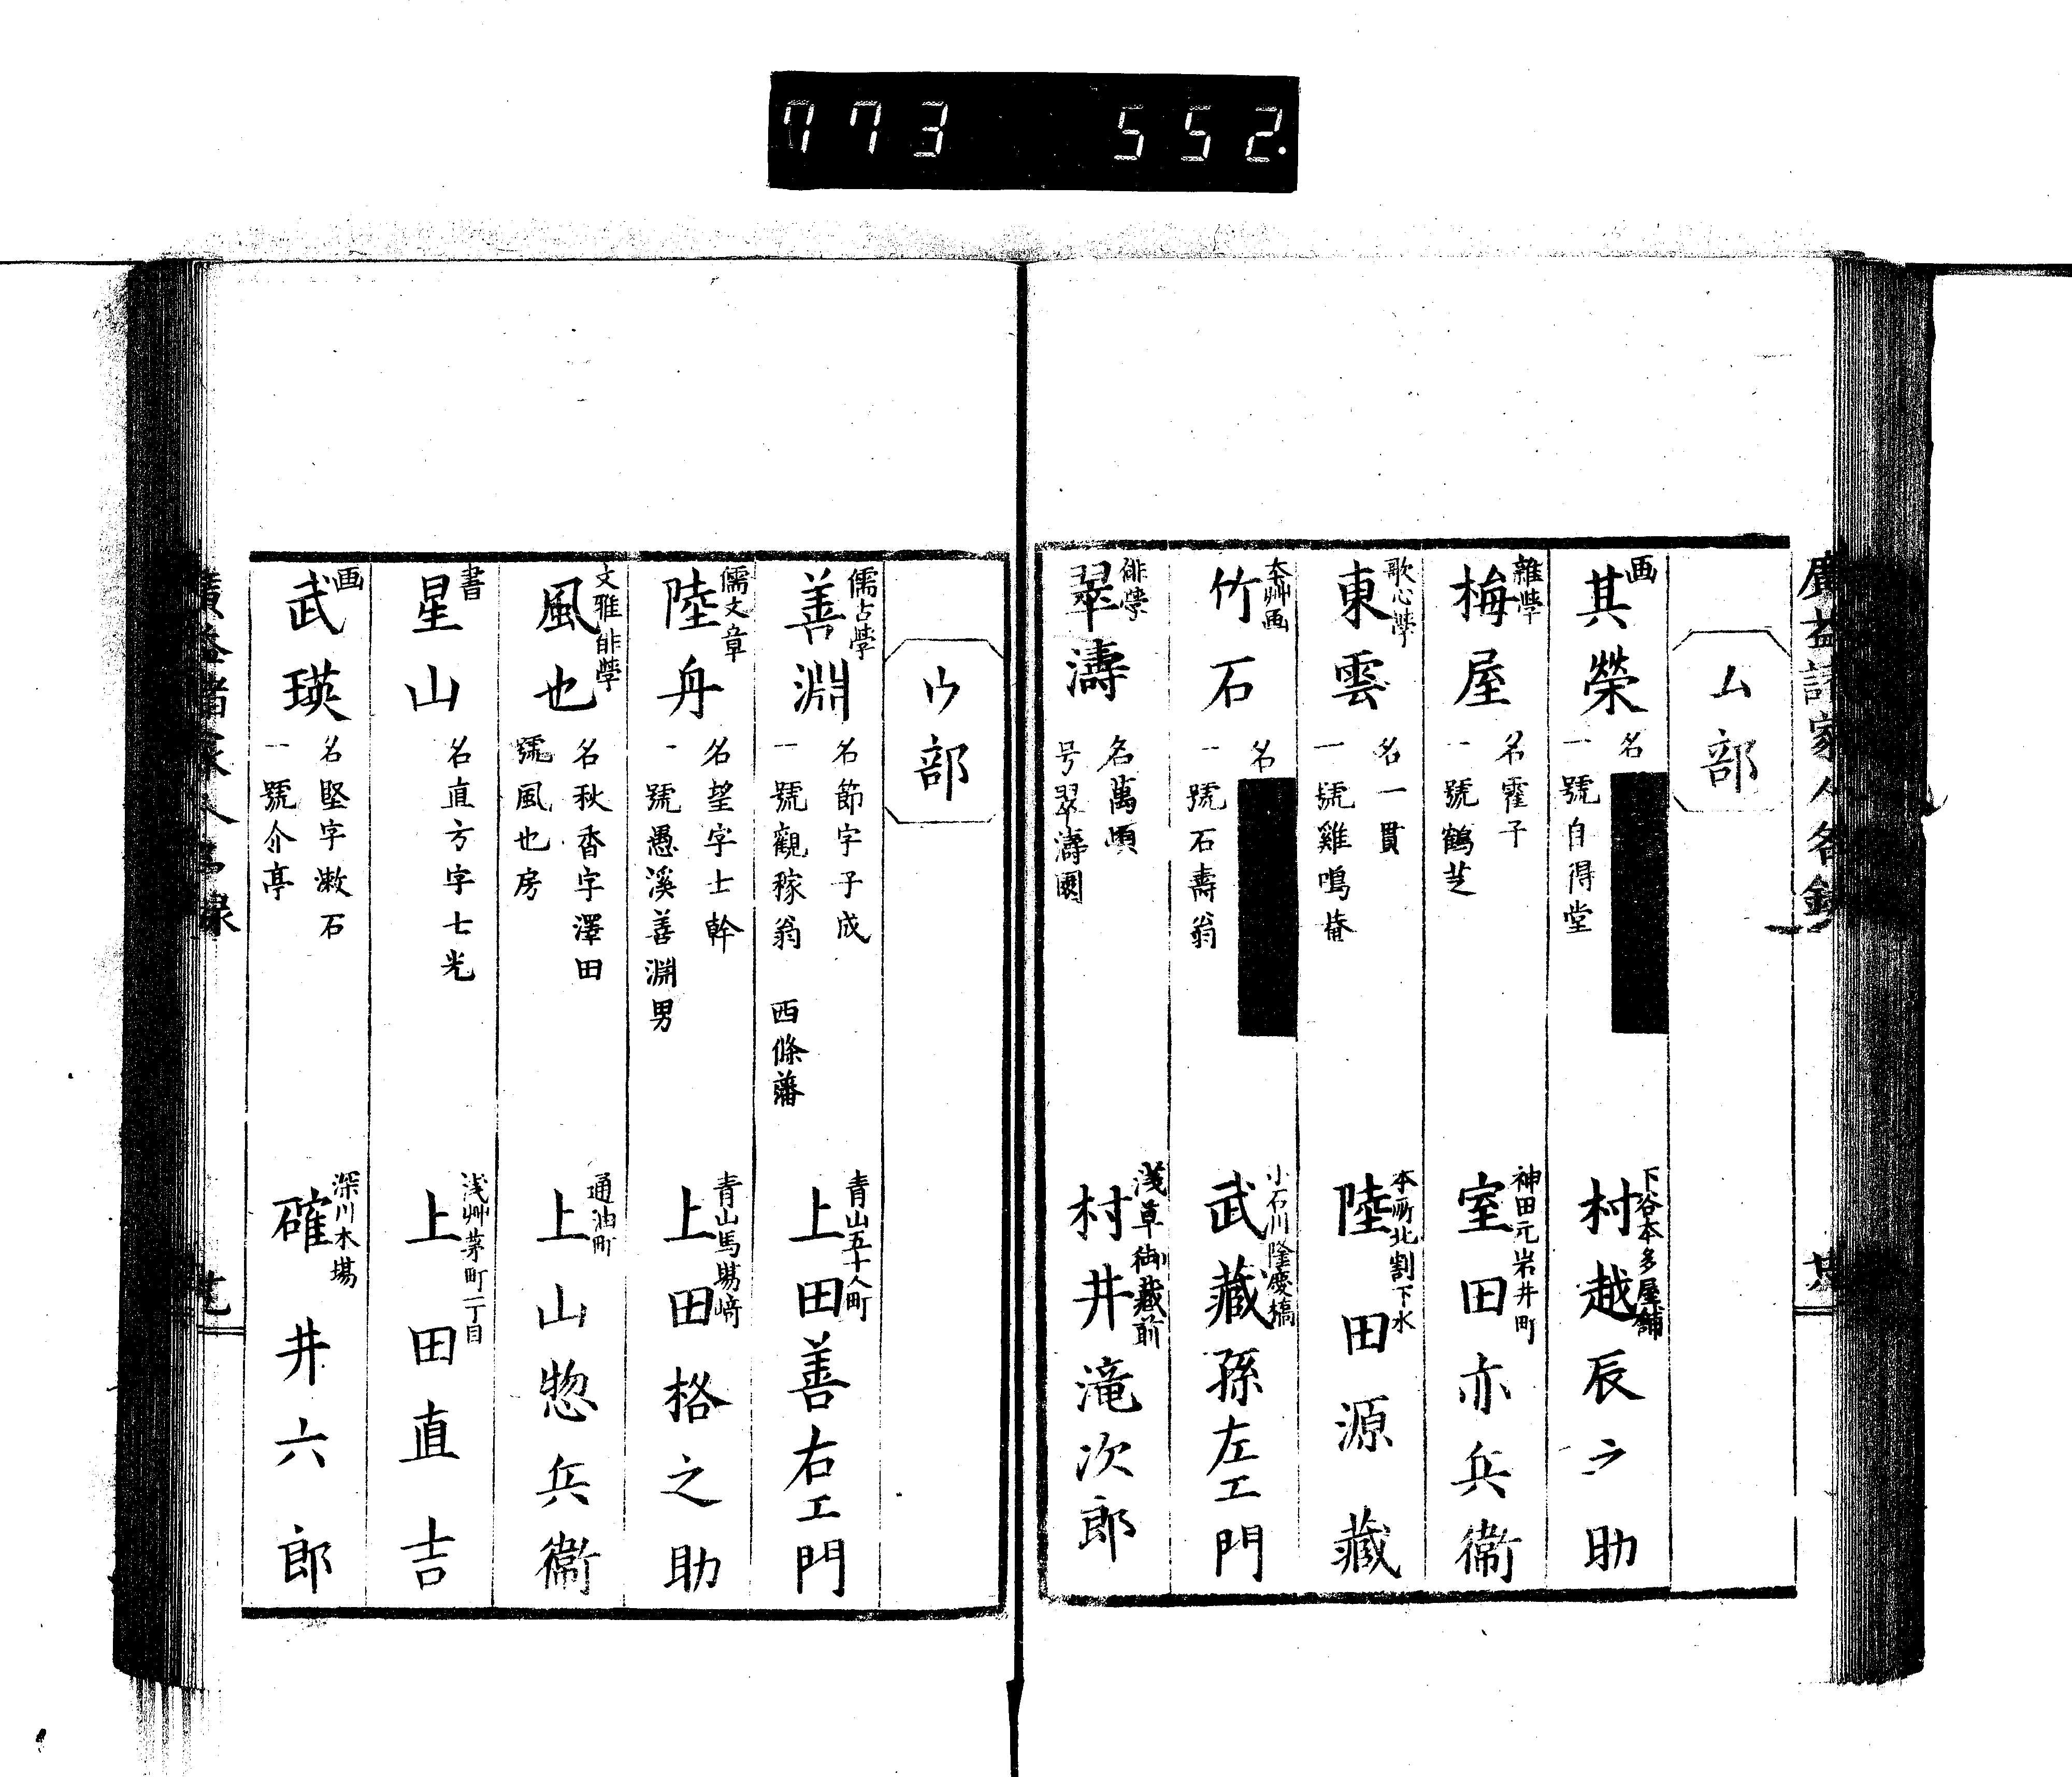 773 552.
ム部
画
其榮
名
一號自得堂
下谷本多屋鋪
村越辰之助
雜學
梅屋
名霍子
一號鶴芝
神田元岩井町
室田亦兵衞
歌心學
東雲
名一貫
一號雞鳴菴
本所北割下水
陸田源藏
本艸画
竹石
名
一號石壽翁
小石川隆慶橋
武藏孫左工門
俳學
翠濤
名萬頃
号翠濤園
浅草御藏前
村井滝次郎
廣益諸家人名錄
ウ部
儒占學
善淵
名節字子成
一號觀稼翁 西條藩
青山五十人町
上田善右工門
儒文章
陸舟
名望字士幹
一號愚溪善淵男
青山馬場﨑
上田格之助
文雅俳學
風也
名秋香字澤田
號風也房
通油町
上山惣兵衞
書
星山
名直方字七光
浅艸茅町二丁目
上田直吉
画
武瑛
名堅字漱石
一號介亭
深川木場
確井六郎
廣益諸家人名錄